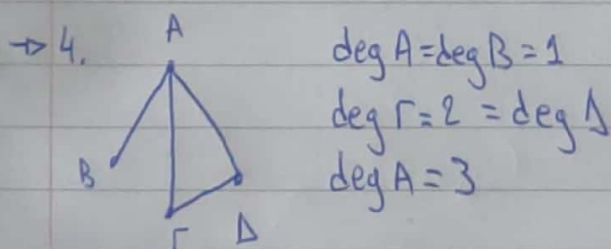 → 4.
A
B
Γ
Δ
deg A = deg B = 1
deg Γ = 2 = deg Δ
deg A = 3